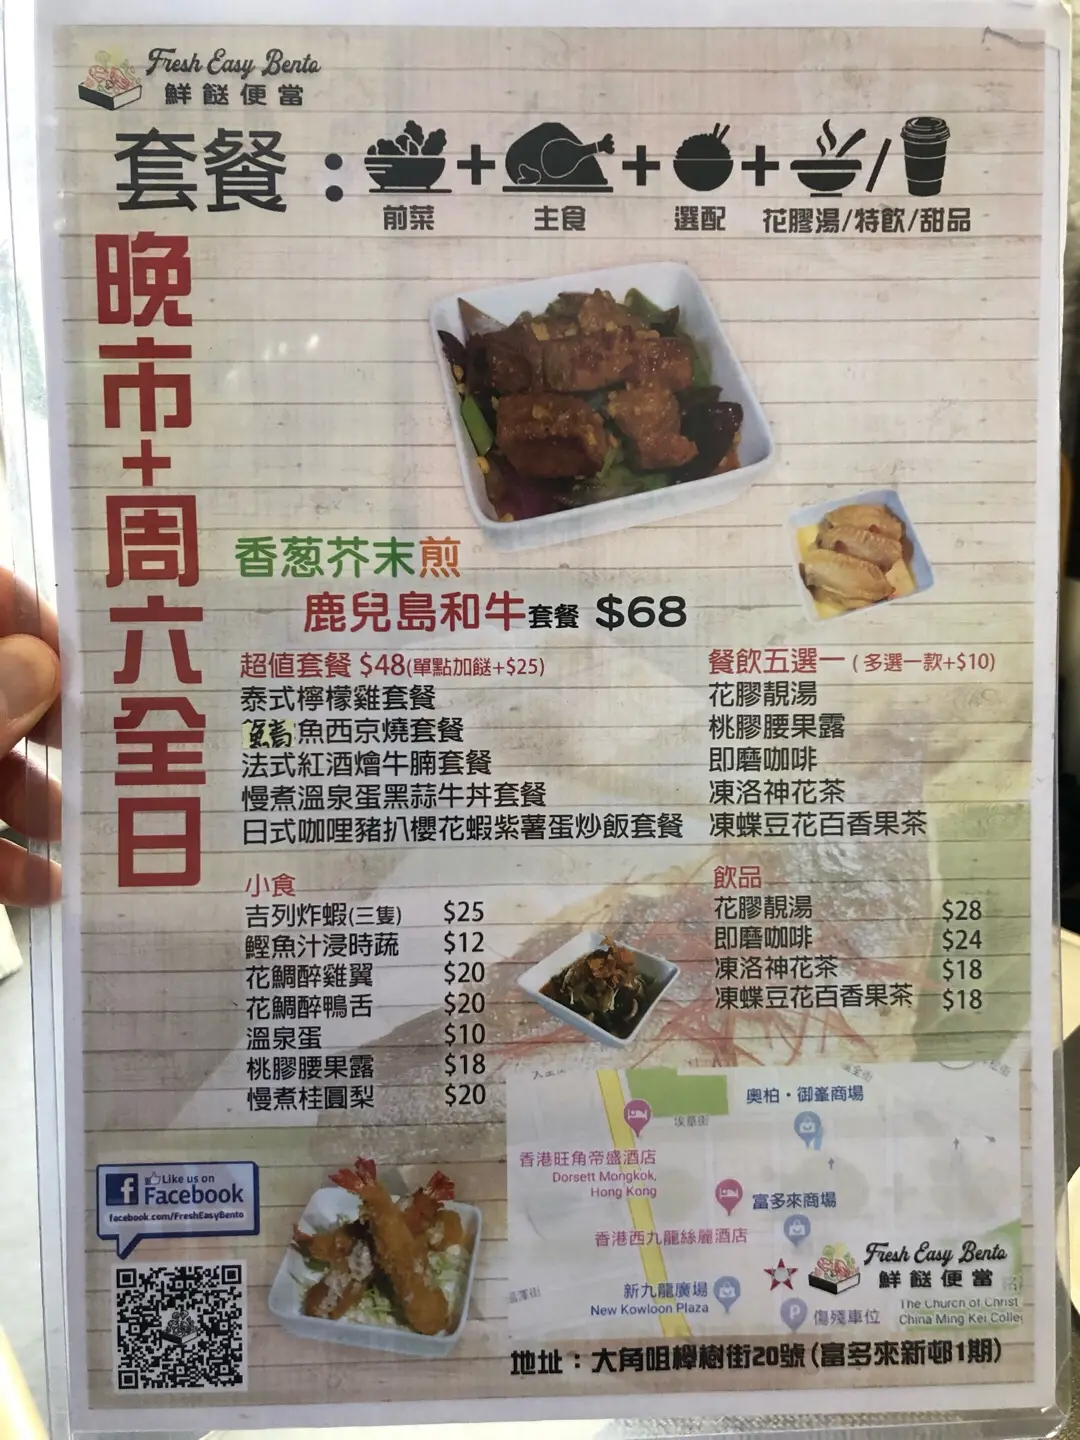 Fresh Easy Bento
鮮餸便當
套餐：
前菜 + 主食 + 選配 + 花膠湯/特飲/甜品
晚市+周六全日
香葱芥末煎
鹿兒島和牛套餐 $68
超值套餐 $48(單點加餸+$25)
泰式檸檬雞套餐
魚西京燒套餐
法式紅酒燴牛腩套餐
慢煮溫泉蛋黑蒜牛丼套餐
日式咖哩豬扒櫻花蝦紫薯蛋炒飯套餐
餐飲五選一 (多選一款+$10)
花膠靚湯
桃膠腰果露
即磨咖啡
凍洛神花茶
凍蝶豆花百香果茶
小食
吉列炸蝦(三隻) $25
鰹魚汁浸時蔬 $12
花鯛醉雞翼 $20
花鯛醉鴨舌 $20
溫泉蛋 $10
桃膠腰果露 $18
慢煮桂圓梨 $20
飲品
花膠靚湯 $28
即磨咖啡 $24
凍洛神花茶 $18
凍蝶豆花百香果茶 $18
Like us on
Facebook
facebook.com/FreshEasyBento
埃華街
奧柏·御峯商場
香港旺角帝盛酒店
Dorsett Mongkok,
Hong Kong
富多來商場
香港西九龍絲麗酒店
新九龍廣場
New Kowloon Plaza
P
傷殘車位
Fresh Easy Bento
鮮餸便當
The Church of Christ
China Ming Kei Colle
地址：大角咀櫸樹街20號(富多來新邨1期)